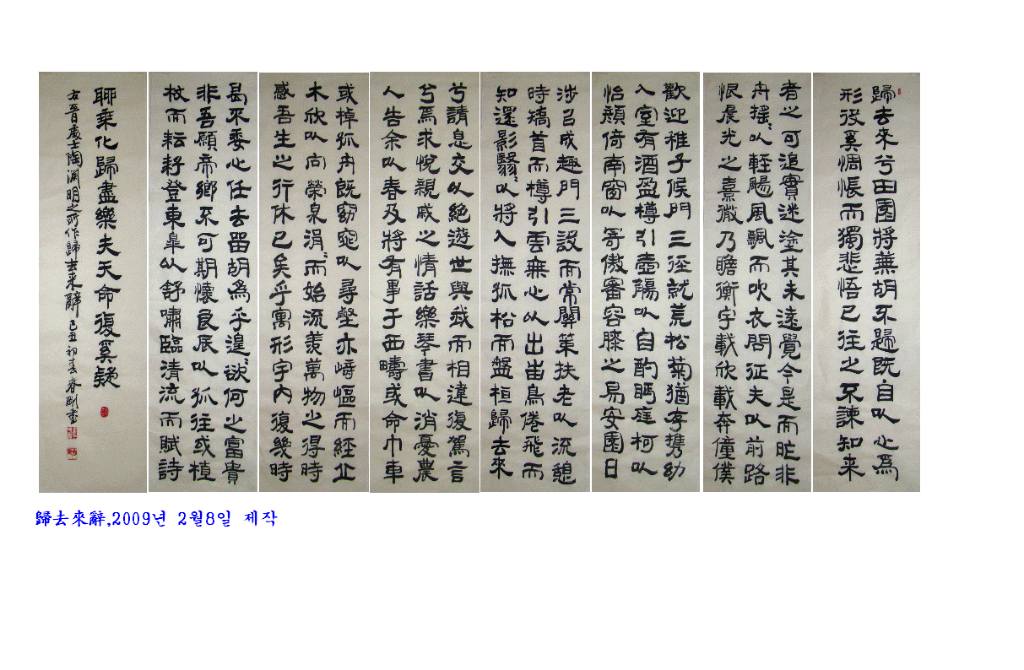 歸去來兮田園將蕪胡不歸旣自以心爲
形役奚惆悵而獨悲悟已往之不諫知來
者之可追實迷塗其未遠覺今是而昨非
舟搖々以輕颺風飄々而吹衣問征夫以前路
恨晨光之熹微乃瞻衡宇載欣載奔僮僕
歡迎稚子候門三徑就荒松菊猶存携幼
入室有酒盈樽引壺觴以自酌眄庭柯以
怡顔倚南窗以寄傲審容膝之易安園日
涉以成趣門三設而常關策扶老以流憩
時矯首而樽引雲無心以出岫鳥倦飛而
知還影翳々以將入撫孤松而盤桓歸去來
兮請息交以絶遊世與我而相違復駕言
兮焉求悅親戚之情話樂琴書以消憂農
人告余以春及將有事于西疇或命巾車
或棹孤舟旣窈窕以尋壑亦崎嶇而經丘
木欣以向榮泉涓々而始流羨萬物之得時
感吾生之行休已矣乎寓形宇內復幾時
曷不委心任去留胡爲乎遑々欲何之富貴
非吾願帝鄕不可期懷良辰以孤往或植
杖而耘耔登東皐以舒嘯臨淸流而賦詩
聊乘化歸盡樂夫天命復奚疑
右晉處士陶淵明之所作歸去來辭 己丑初春
歸去來辭,2009년 2월8일 제작